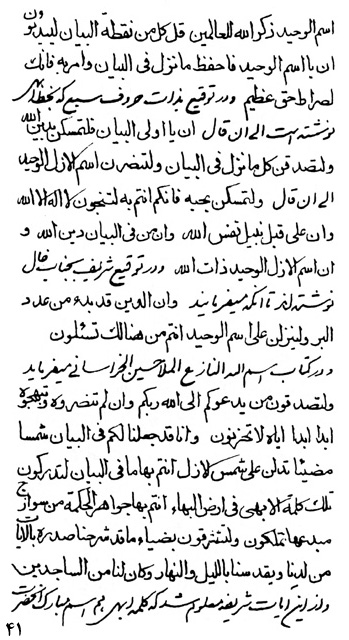 اسم الوحيد ذكر الله للعالمين قل كل من نقطة البيان ليبدؤن
ان يا اسم الوحيد فاحفظ ما نزل فى البيان وامر به فانك
لصراط حق عظيم ودر توقيع بذات حروف سبع كه بخط ابهى
نوشته است الى ان قال ان يا اولى البيان فلتمسكن بدين الله
ولتصدقن كل ما نزل فى البيان ولتنصرن اسم الازل الوحيد
الى ان قال ولتمسكن بحبه فانكم انتم به لتنجون لا اله الا الله
وان على قبل نبيل نفس الله وان من فى البيان دين الله و
ان اسم الازل الوحيد ذات الله ودر توقيع شريف بجناب خال
نوشته اند تا انكه ميفرمايند وان الذين قد بدع من عدد
البر ولينزلن على اسم الوحيد انتم من هنالك تسئلون
ودر كتاب اسم الله النازع الملا حسين الخراسانى ميفرمايد
ولتصدقون من يدعوكم الى الله ربكم وان لم تنصروه وتبهجوه
ابدا ابدا اياه لا تحزنون وانا قد جعلنا لكم فى البيان شمسا
مضيئا تدلن على شمس الازل انتم بها ما فى البيان لتدركون
تلك كلمة الابهى فى ارض البهاء انتم بها جواهر الحكمة من سواذج
مبدعها تملكون ولتشرقون بضياء ما قد شرحنا صدره بالايات
من لدنا ويقدسنا بالليل والنهار وكان لنا من الساجدين
واز اين آيات شريفه معلوم شد كه كلمه ابهى هم اسم مبارك آنحضرت
٤١